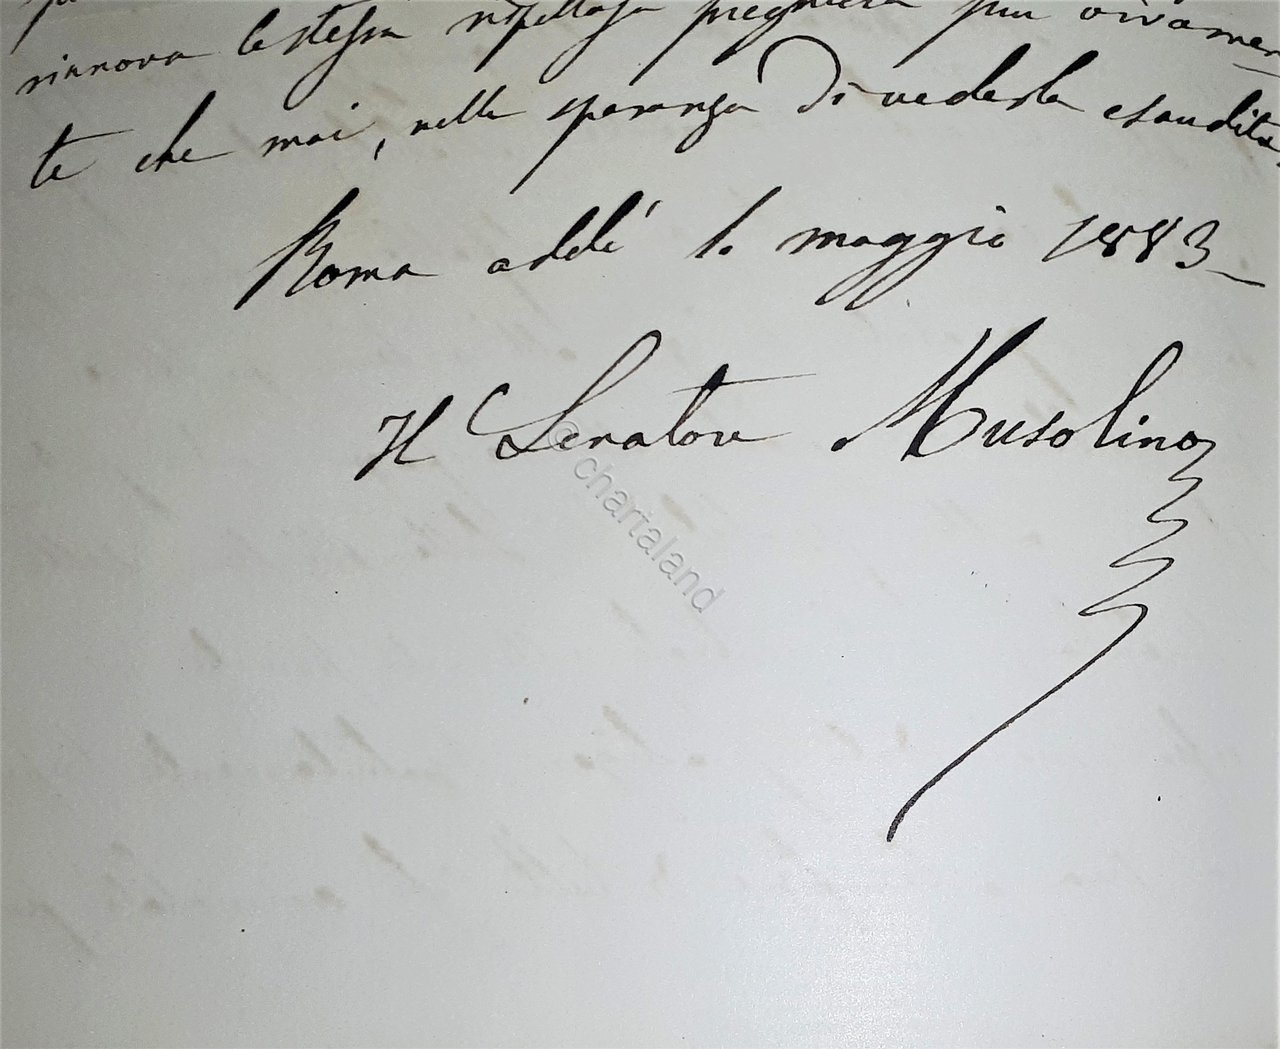 rinnova la stessa rispettosa preghiera più vivamen
te che mai, nella speranza di vederla esaudita.
Roma addì 1. maggio 1883_
Il Senatore Musolino
© chartaland